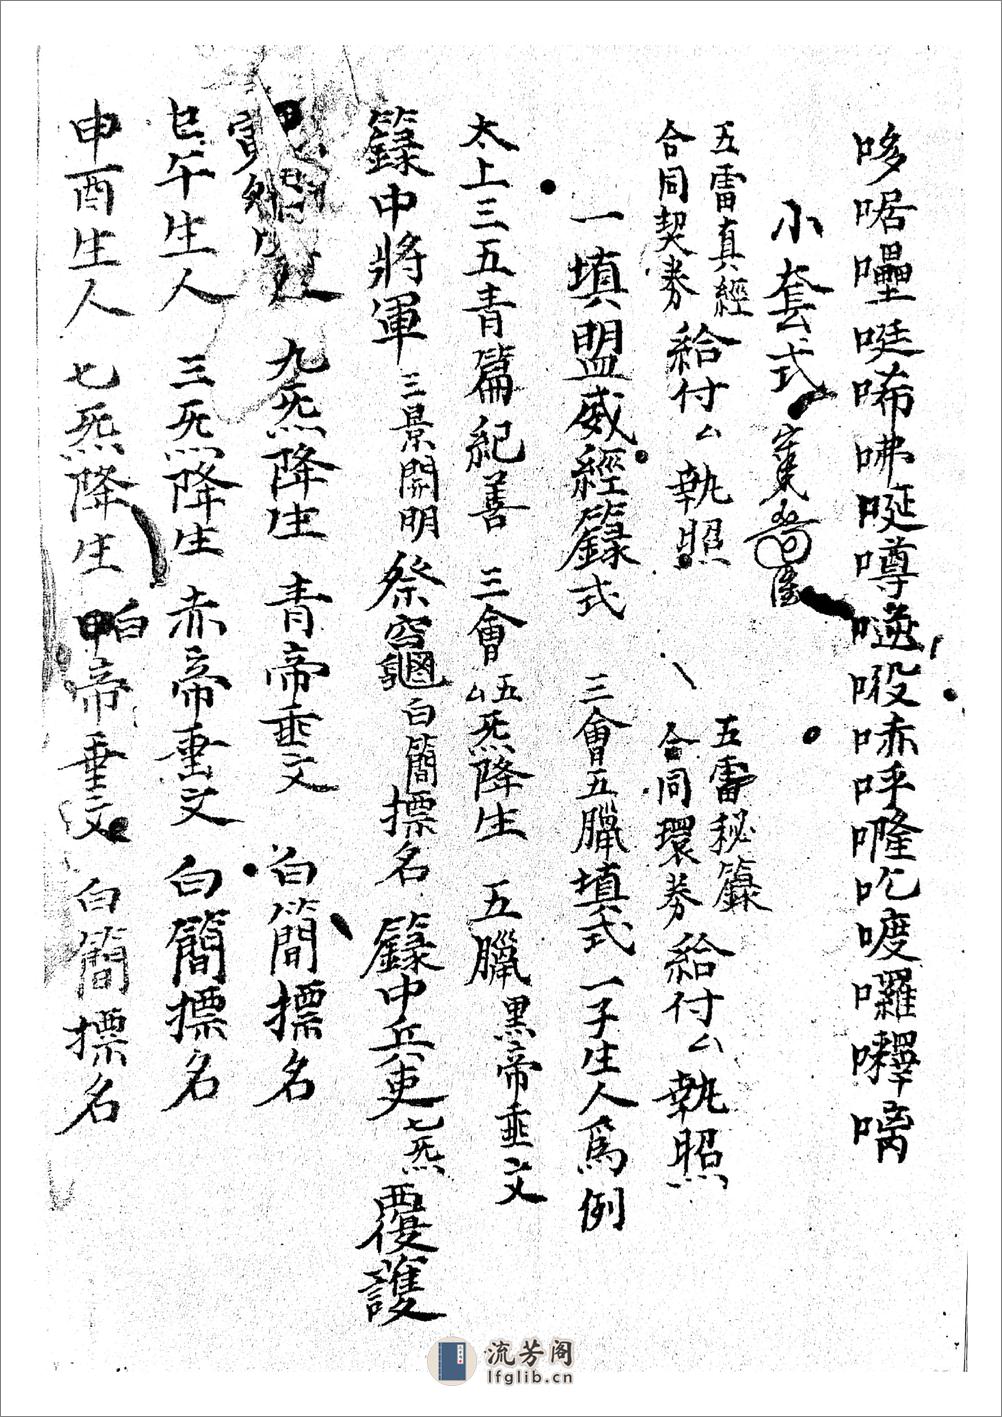 哆啹㘔哫唏咈唌噂𡁠㗨哧呼㘾吃喥囉㘁嗬
小套式
五雷真經
合同契券
給付ム執照
五雷秘籙
合同環券
給付ム執照
一填盟威經籙式 三會五臘填式 一子生人爲例
太上三五青篇紀善 三會 五炁降生 五臘 黑帝垂文
籙中將軍 三景開明 祭窮𩴪 白簡摽名 籙中兵吏 七炁 覆護
寅卯 九炁降生 青帝垂文 白簡摽名
巳午生人 三炁降生 赤帝垂文 白簡摽名
申酉生人 七炁降生 白帝垂文 白簡摽名
流芳阁
lfglib.cn